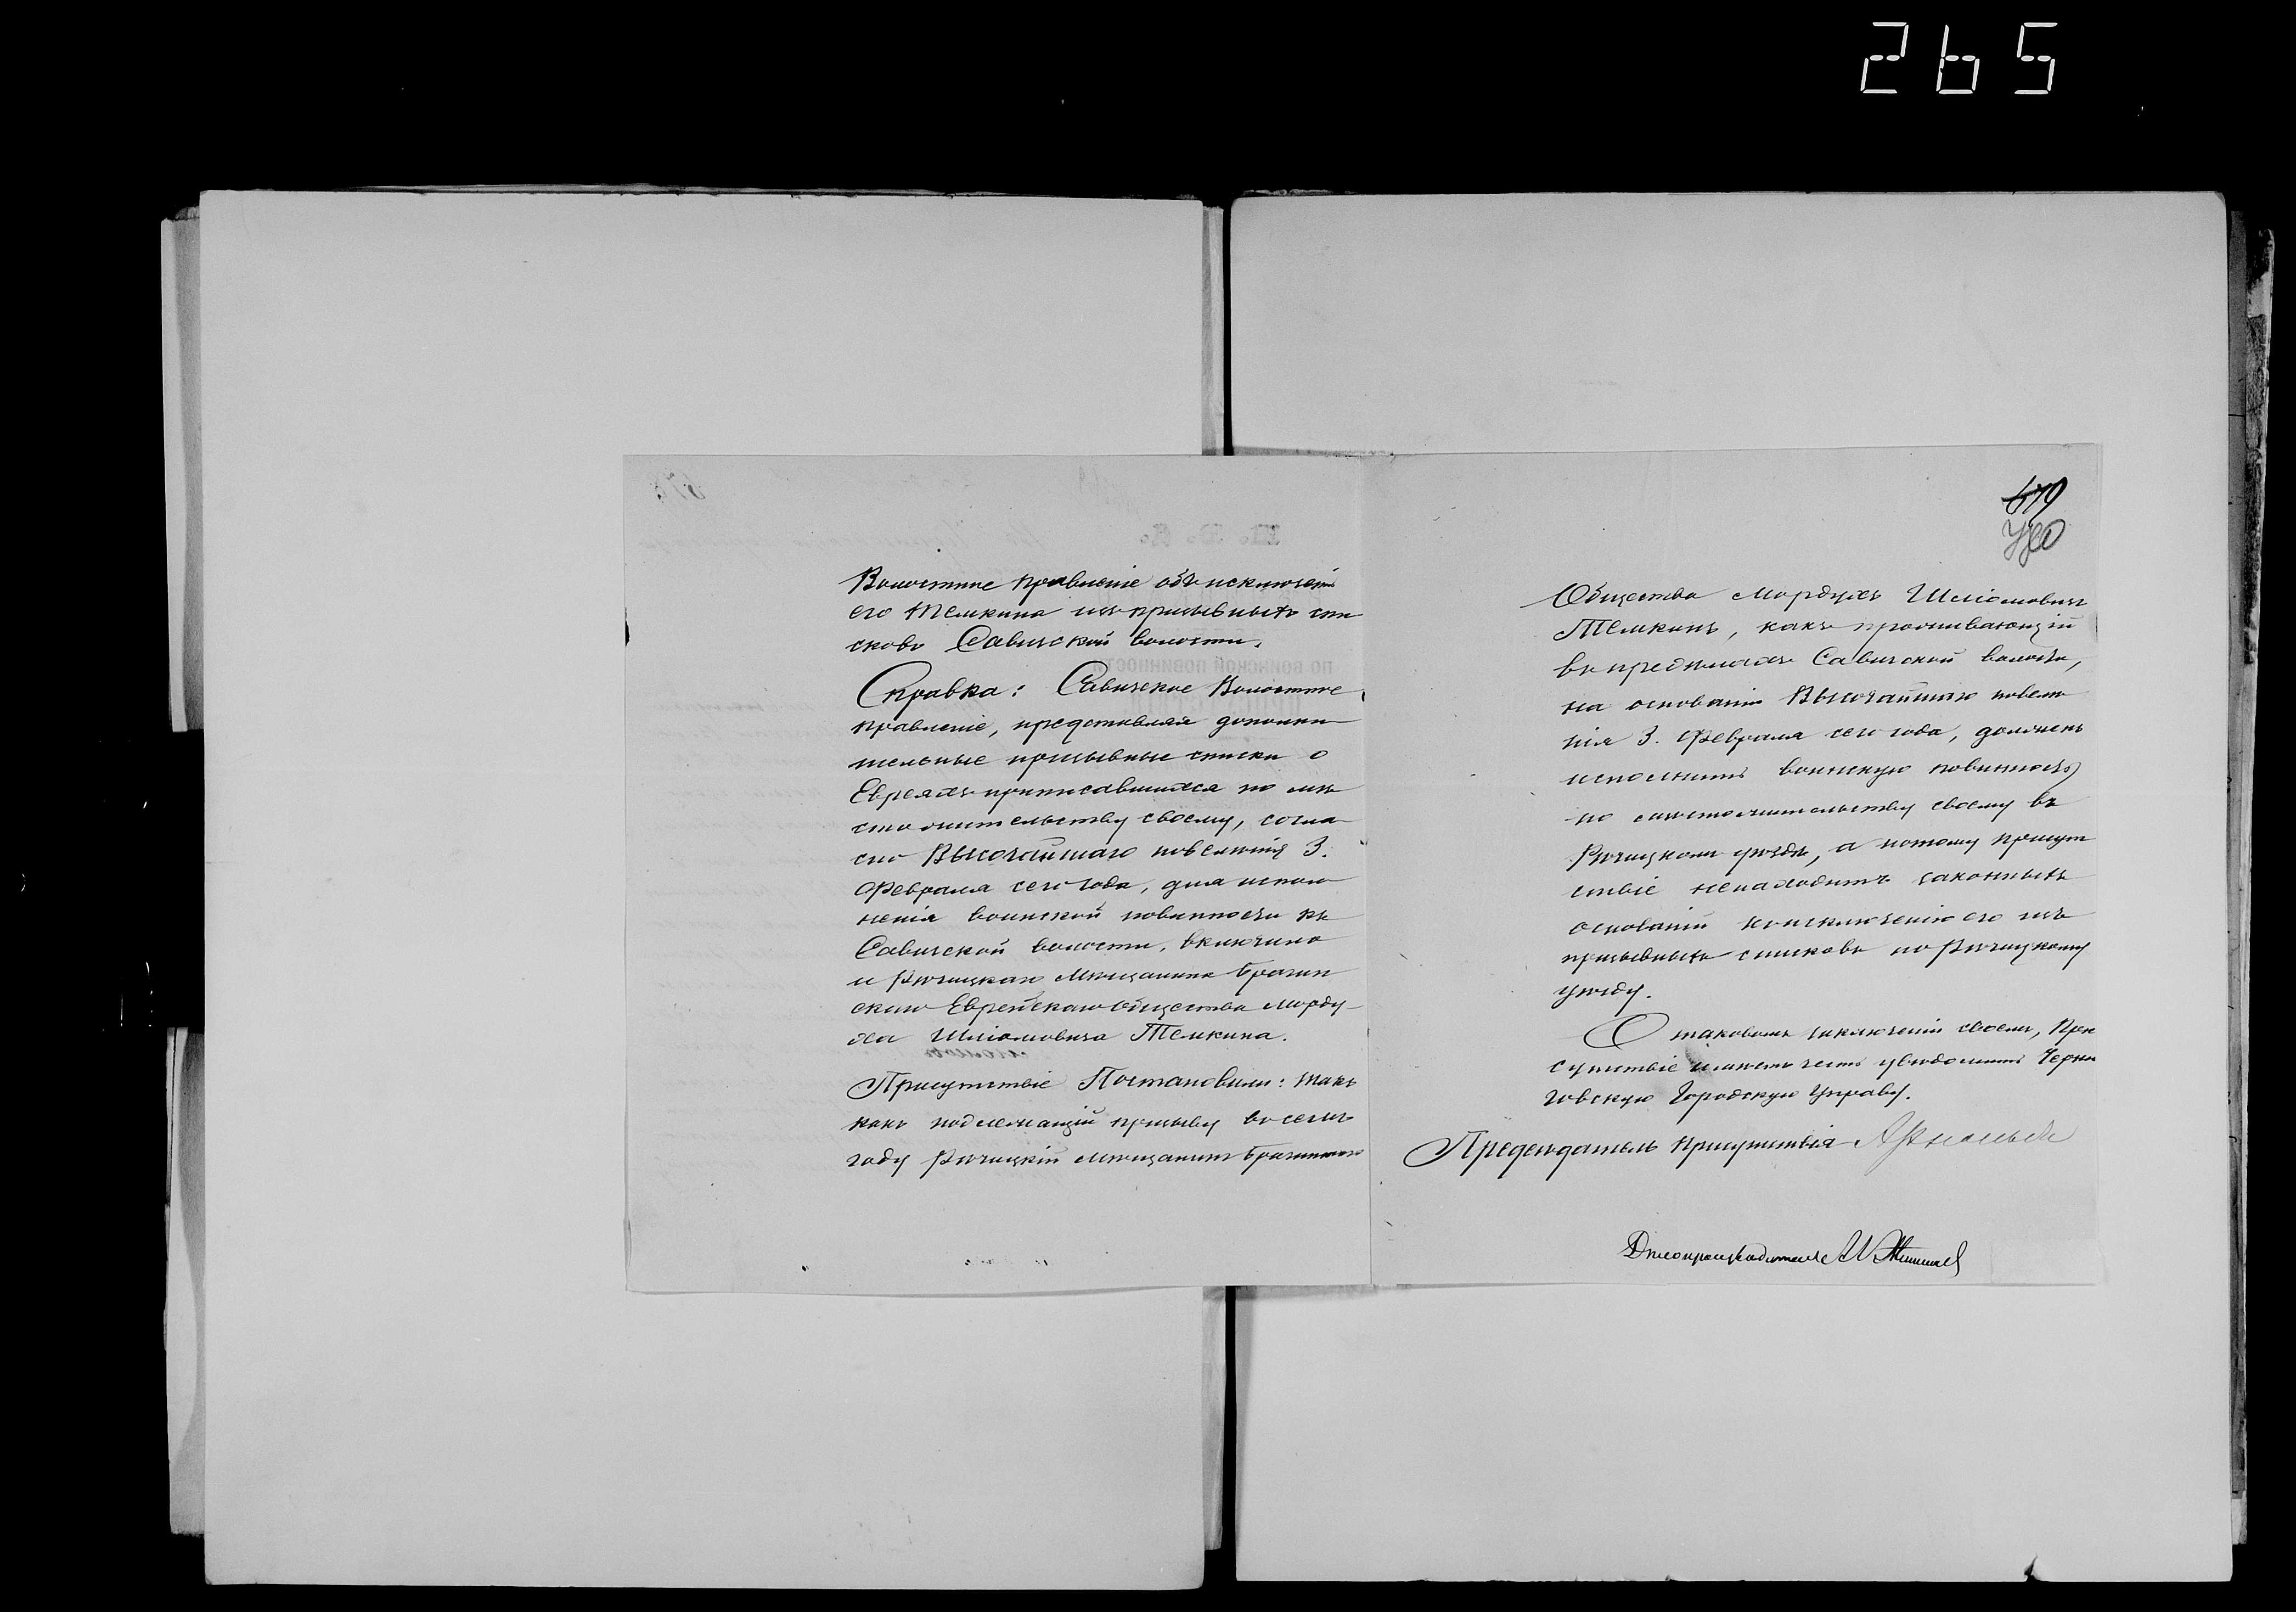 265
Волостное правленіе объ исключеніи
его Темкина изъ призывныхъ спи
сковъ Савичской волости.
Справка: Савичское Волостное
правленіе, представляя дополни
тельные призывные списки о
Евреяхъ приписавшихся по мѣ
сто жительству своему, согла
сно Высочайшаго повелѣнія 3.
Февраля сего года, для испол
ненія воинской повинности къ
Савичской волости, включило
и Рѣчицкаго мѣщанина Брагин
скаго Еврейскаго Общества Морду
ха Шліомовича Темкина.
Присутствіе Постановило: такъ
какъ подлежащій призыву въ семъ
году Рѣчицкій мѣщанинъ Брагинскаго
479
Общества Мордухъ Шліомовичъ
Темкинъ, какъ проживающій
въ предѣлахъ Савичской волости,
на основаніи Высочайшаго повелѣ
нія 3. Февраля сего года, долженъ
исполнить воинскую повинность
по мѣстожительству своему въ
Рѣчицкомъ уѣздѣ, а потому присут
ствіе ненаходитъ законныхъ
основаній къ исключенію его изъ
призывныхъ списковъ по Рѣчицкому
уѣзду.
О таковомъ заключеніи своемъ, При
сутствіе имѣетъ честь увѣдомить Черни
говскую Городскую Управу.
Предсѣдатель Присутствія
Дѣлопроизводитель